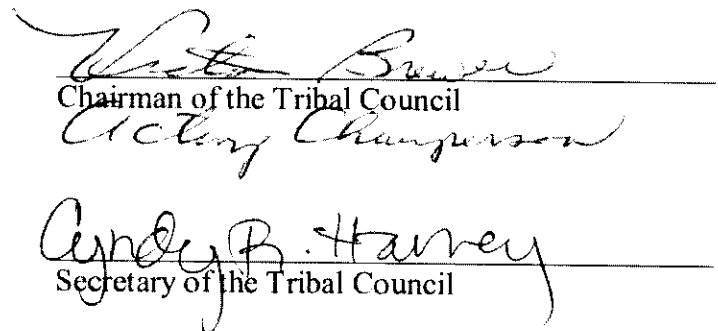 Brewer
Chairman of the Tribal Council
Acting Chairperson
Cyndy R. Harvey
Secretary of the Tribal Council